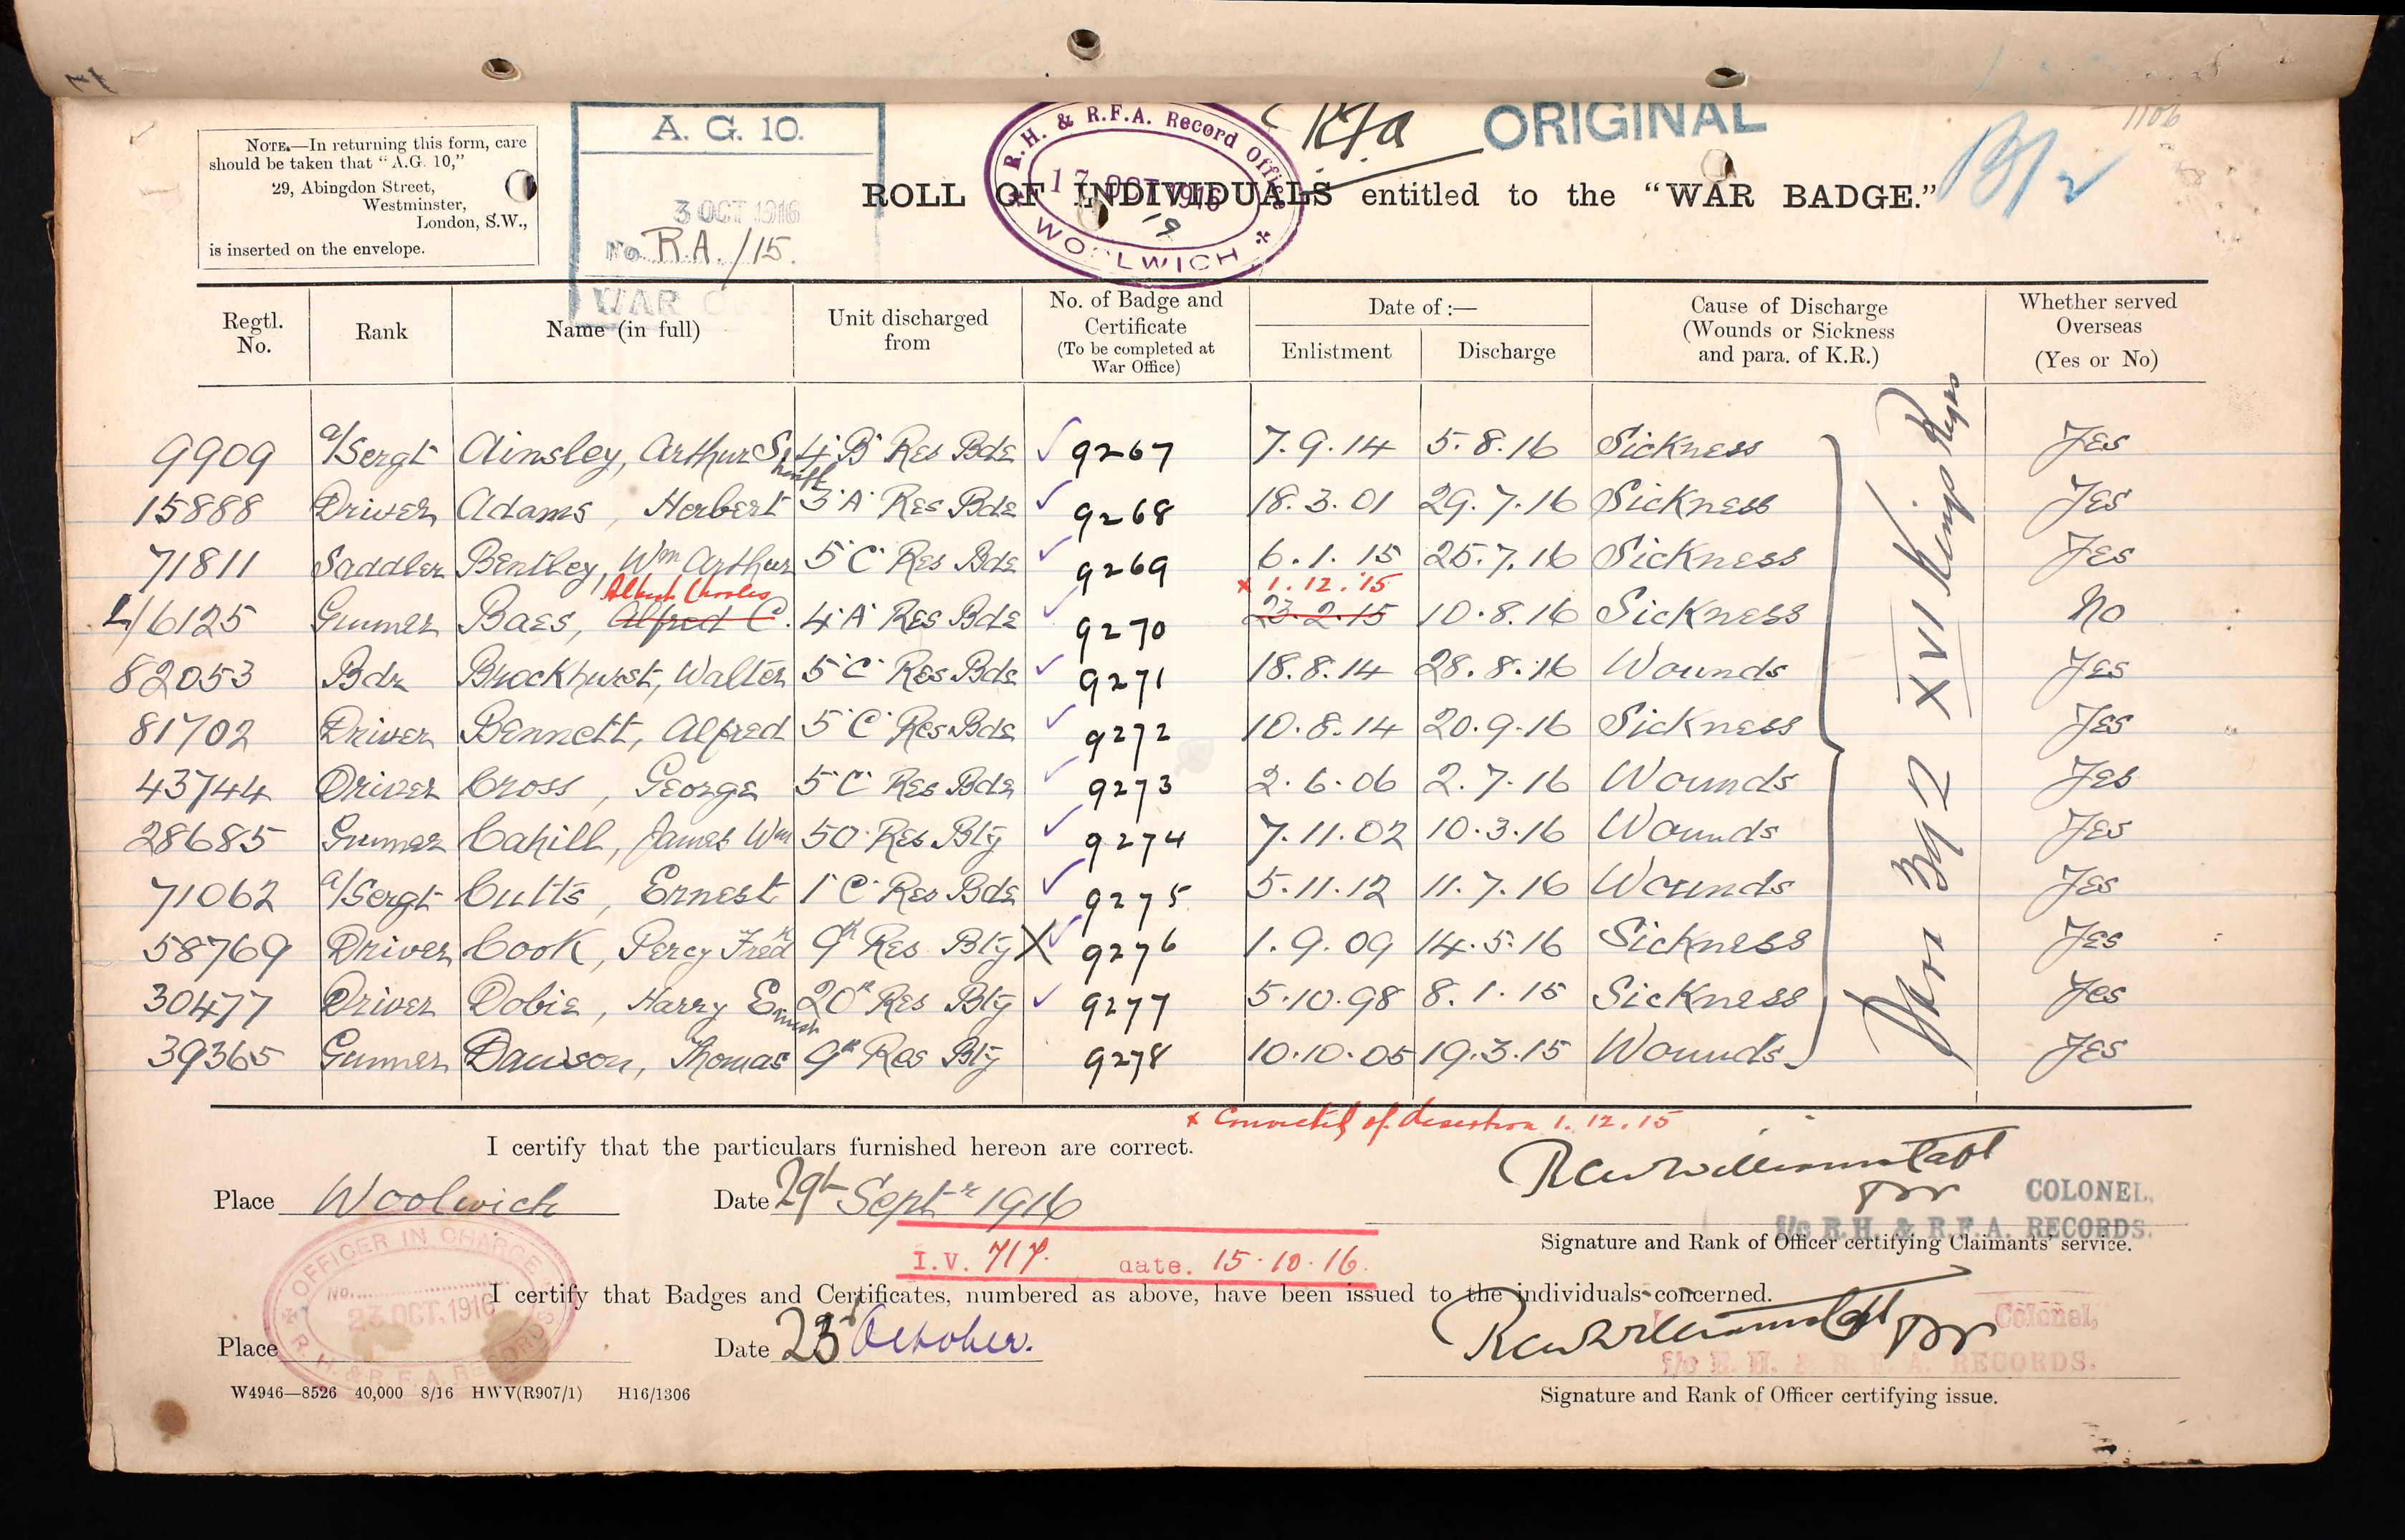 NOTE.—In returning this form, care
should be taken that "A.G. 10,"
29, Abingdon Street,
Westminster,
London, S.W.,
is inserted on the envelope.
A. G. 10.
3 OCT 1916
No. R.A./15.
WAR
R.H. & R.F.A. Record Office
17 OCT 1916
WOOLWICH
Rfa
ORIGINAL
1106
ROLL OF INDIVIDUALS entitled to the "WAR BADGE."
Regtl. No. Rank Name (in full) Unit discharged from No. of Badge and Certificate (To be completed at War Office) Date of :— Enlistment Discharge Cause of Discharge (Wounds or Sickness and para. of K.R.) Whether served Overseas (Yes or No)
9909 a/Sergt Ainsley, Arthur 4·B· Res Bde 9267 7.9.14 5.8.16 Sickness Yes
15888 Driver Adams, Herbert 3·A· Res Bde 9268 18.3.01 29.7.16 Sickness Yes
71811 Saddler Bentley, Wm Arthur 5·C· Res Bde 9269 6.1.15 25.7.16 Sickness Yes
Albert Charles x 1.12.15
L/6125 Gunner Baes, Alfred C. 4·A· Res Bde 9270 23.2.15 10.8.16 Sickness No
82053 Bdr Brockhurst, Walter 5·C· Res Bde 9271 18.8.14 28.8.16 Wounds Yes
81702 Driver Bennett, Alfred 5·C· Res Bde 9272 10.8.14 20.9.16 Sickness Yes
43744 Driver Cross, George 5·C· Res Bde 9273 2.6.06 2.7.16 Wounds Yes
28685 Gunner Cahill, James Wm 50 Res Bty 9274 7.11.02 10.3.16 Wounds Yes
71062 a/Sergt Cutts, Ernest 1·C· Res Bde 9275 5.11.12 11.7.16 Wounds Yes
58769 Driver Cook, Percy Fredk 9th Res Bty X 9276 1.9.09 14.5.16 Sickness Yes
30477 Driver Dobie, Harry Ernest 20th Res Bty 9277 5.10.98 8.1.15 Sickness Yes
39365 Gunner Dawson, Thomas 9th Res Bty 9278 10.10.05 19.3.15 Wounds Yes
392 XVI Kings Regns
x Convicted of desertion 1.12.15
I certify that the particulars furnished hereon are correct.
Place Woolwich Date 29th Septr 1916
Capt
COLONEL,
i/c R.H. & R.F.A. RECORDS.
Signature and Rank of Officer certifying Claimants' service.
I.V. 717. date. 15.10.16.
OFFICER IN CHARGE
No.
23 OCT. 1916
R.H. & R.F.A. RECORDS
I certify that Badges and Certificates, numbered as above, have been issued to the individuals concerned.
Place Date 23 October.
Colonel,
i/c R. H. & R. F. A. RECORDS.
Signature and Rank of Officer certifying issue.
W4946—8526 40,000 8/16 HWV(R907/1) H16/1306